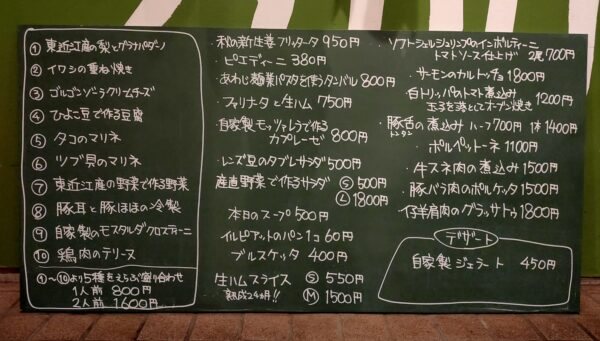 ① 東近江産の梨とグラナパダーノ
② イワシの重ね焼き
③ ゴルゴンゾーラクリームチーズ
④ ひよこ豆で作る豆腐
⑤ タコのマリネ
⑥ ツブ貝のマリネ
⑦ 東近江産の野菜で作る野菜
⑧ 豚耳と豚ほほの冷製
⑨ 自家製のモスタルダクロスティーニ
⑩ 鶏肉のテリーヌ
①〜⑩より5種をえらぶ盛り合わせ
1人前 800円
2人前 1600円
・秋の新生姜フリッタータ 950円
・ピエディーニ 380円
・あわじ麺業パスタを使うタンバル 800円
・ファリナータと生ハム 750円
自家製モッツァレラで作る
カプレーゼ 800円
・レンズ豆のタブレサラダ 500円
産直野菜で作るサラダ Ⓢ 500円
Ⓛ 1800円
本日のスープ 500円
イルピアットのパン 1コ 60円
ブルスケッタ 400円
生ハムスライス Ⓢ 550円
熟成24ヵ月!! Ⓜ 1500円
・ソフトシェルシュリンプのインポルティーニ
トマトソース仕上げ 2尾 700円
・サーモンのカルトッチョ 1800円
白トリッパのトマト煮込み
玉子を落としてオーブン焼き 1200円
・豚舌の煮込み ハーフ 700円 1本 1400円
トンタン
・ポルペットーネ 1100円
・牛スネ肉の煮込み 1500円
・豚バラ肉のポルケッタ 1500円
・仔羊肩肉のグラッサトゥ 1800円
デザート
自家製ジェラート 450円